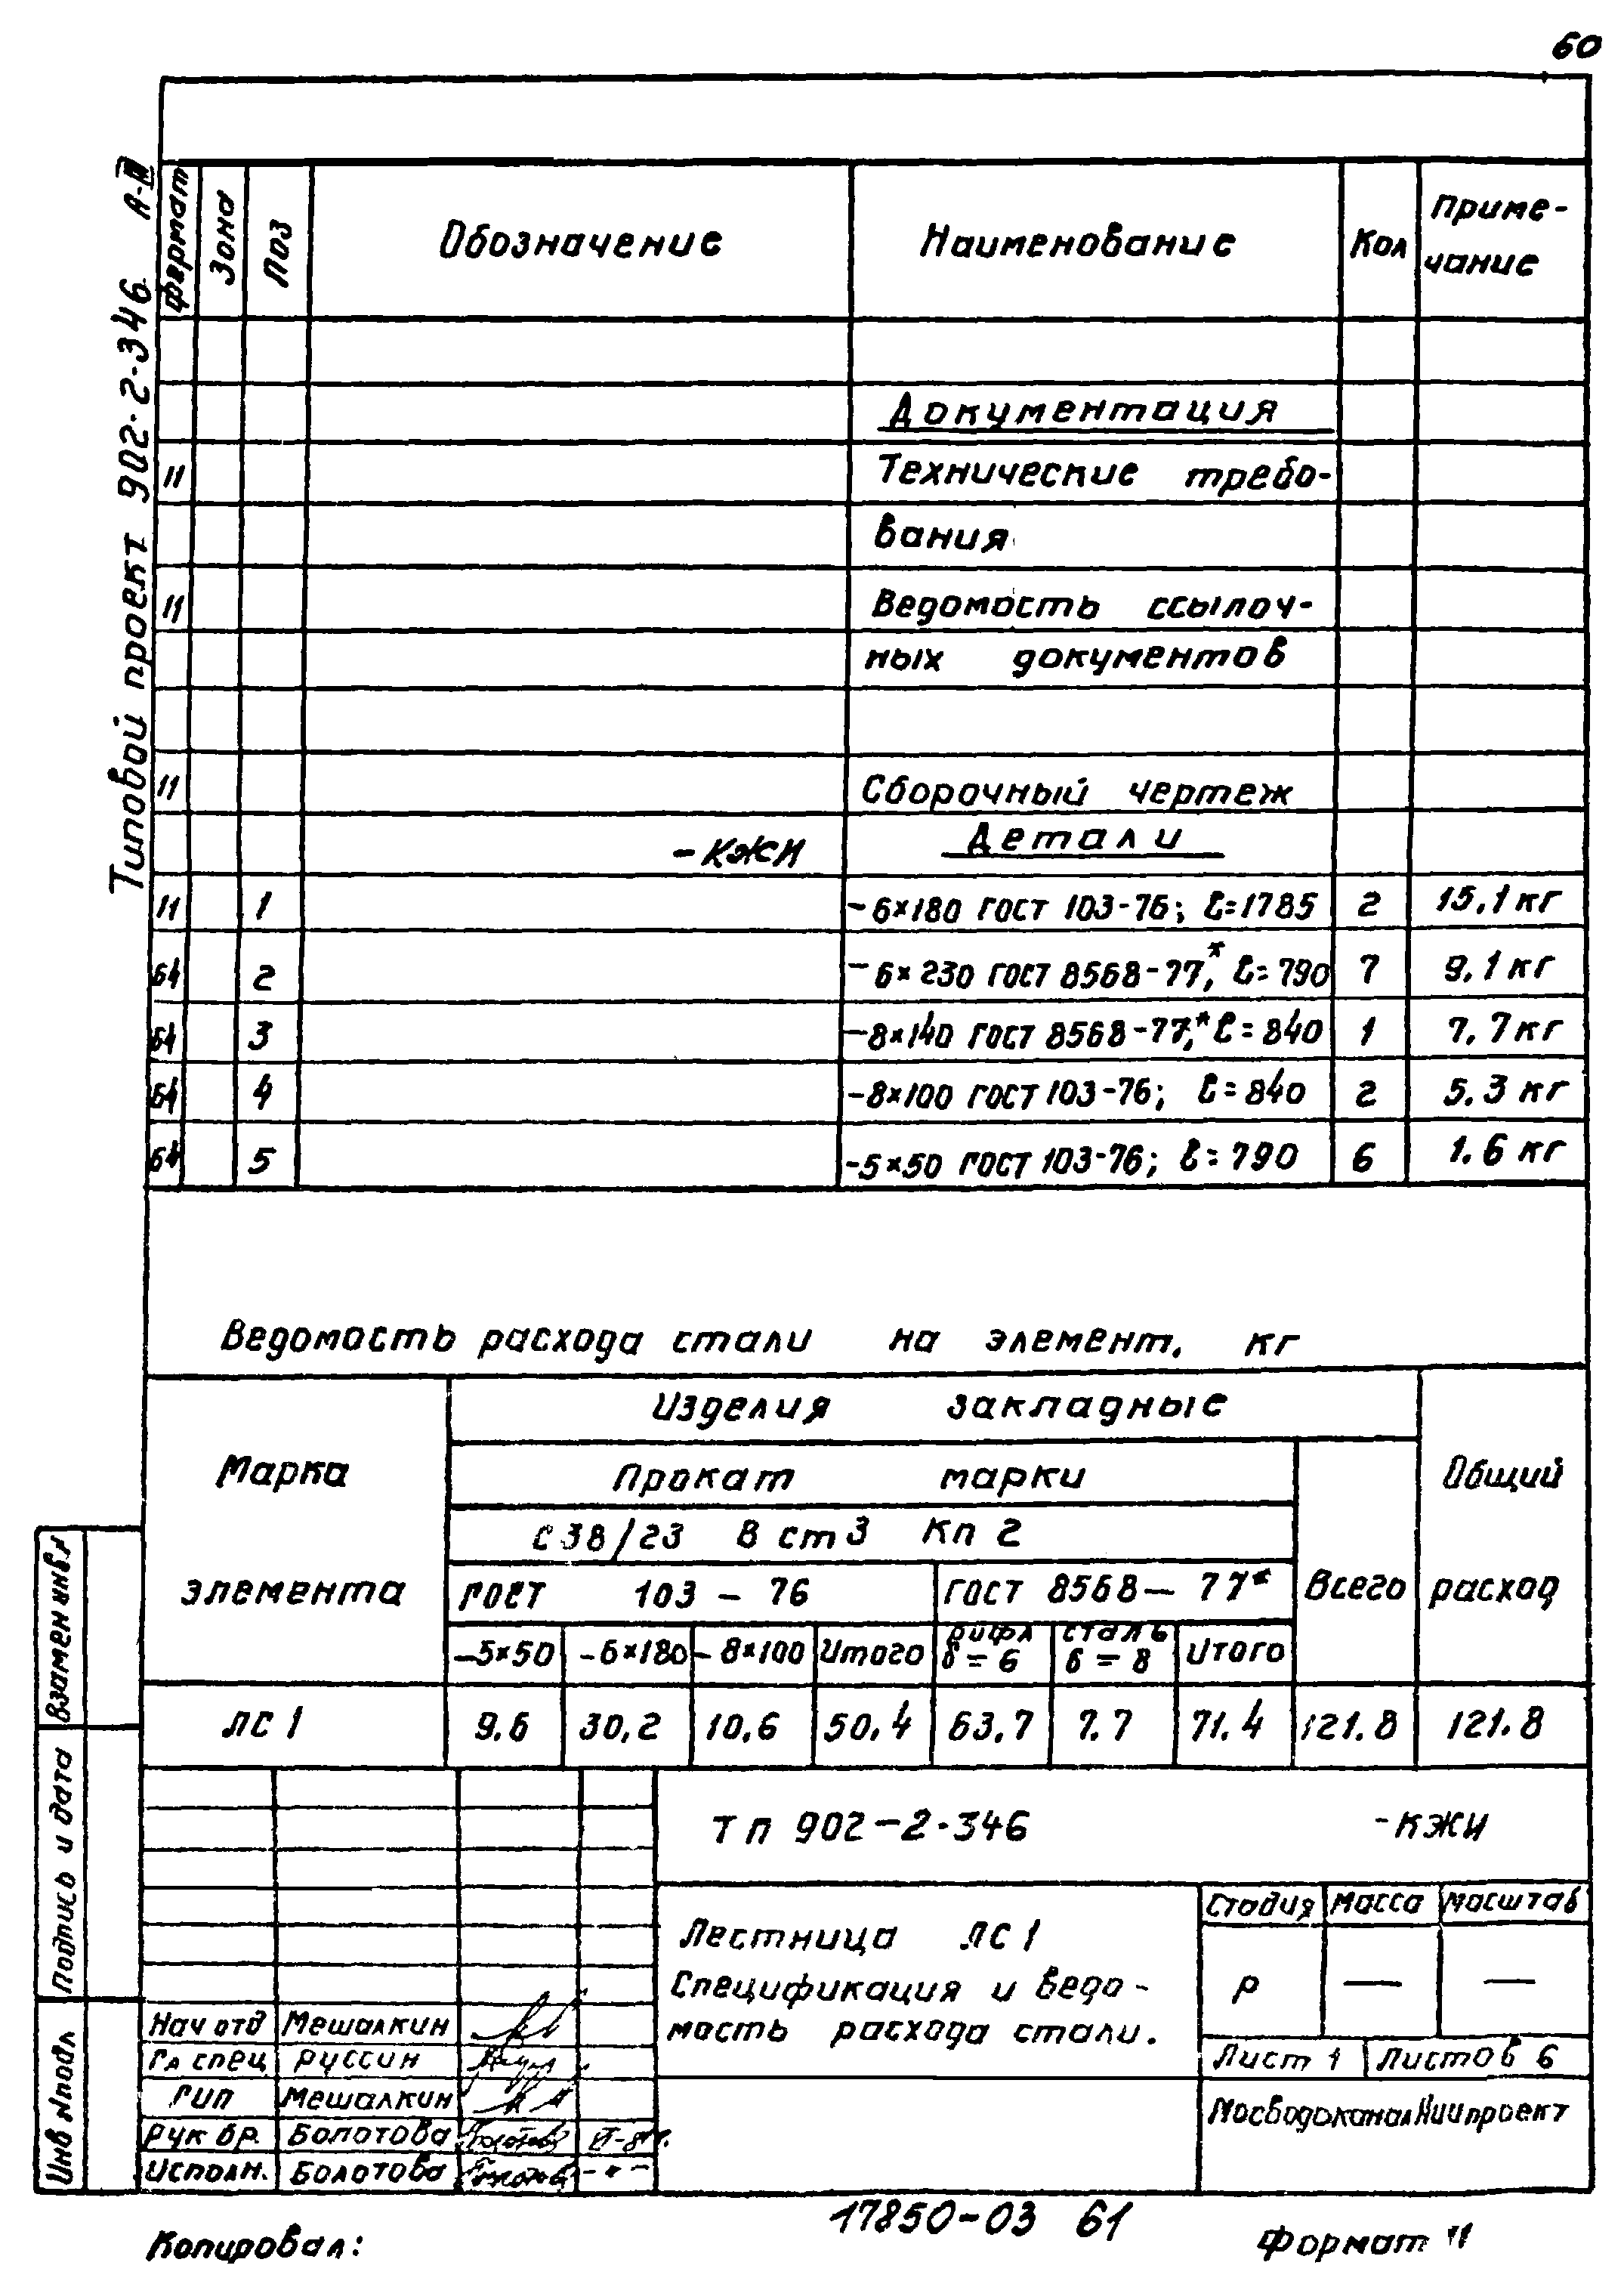 60
Типовой проект 902-2-346 А-III
Формат Зона Поз Обозначение Наименование Кол Приме-
чание
Документация
11 Технические требо-
вания
11 Ведомость ссылоч-
ных документов
11 Сборочный чертеж
-КЖИ Детали
11 1 -6×180 ГОСТ 103-76; ℓ=1785 2 15.1 кг
б4 2 -6×230 ГОСТ 8568-77*, ℓ=790 7 9.1 кг
б4 3 -8×140 ГОСТ 8568-77*, ℓ=840 1 7.7 кг
б4 4 -8×100 ГОСТ 103-76; ℓ=840 2 5.3 кг
б4 5 -5×50 ГОСТ 103-76; ℓ=790 6 1.6 кг
Ведомость расхода стали на элемент, кг
Марка
элемента
Изделия закладные
Прокат марки
С38/23 В ст3 Кп 2
ГОСТ 103-76 ГОСТ 8568-77*
Всего
Общий
расход
-5×50 -6×180 -8×100 Итого рифл δ=6 сталь δ=8 Итого
ЛС 1 9.6 30,2 10,6 50,4 63,7 7.7 71.4 121.8 121.8
Взамен инв.N
Подпись и дата
Инв Nподл
ТП 902-2-346 -КЖИ
Лестница ЛС 1
Спецификация и ведо-
мость расхода стали.
Стадия Масса Масштаб
Р — —
Лист 1 Листов 6
МосводоканалНиипроект
Нач отд Мешалкин
Гл спец Руссин
Гип Мешалкин
Рук бр. Болотова
Исполн. Болотова -"-
Копировал:
17850-03 61
Формат 11